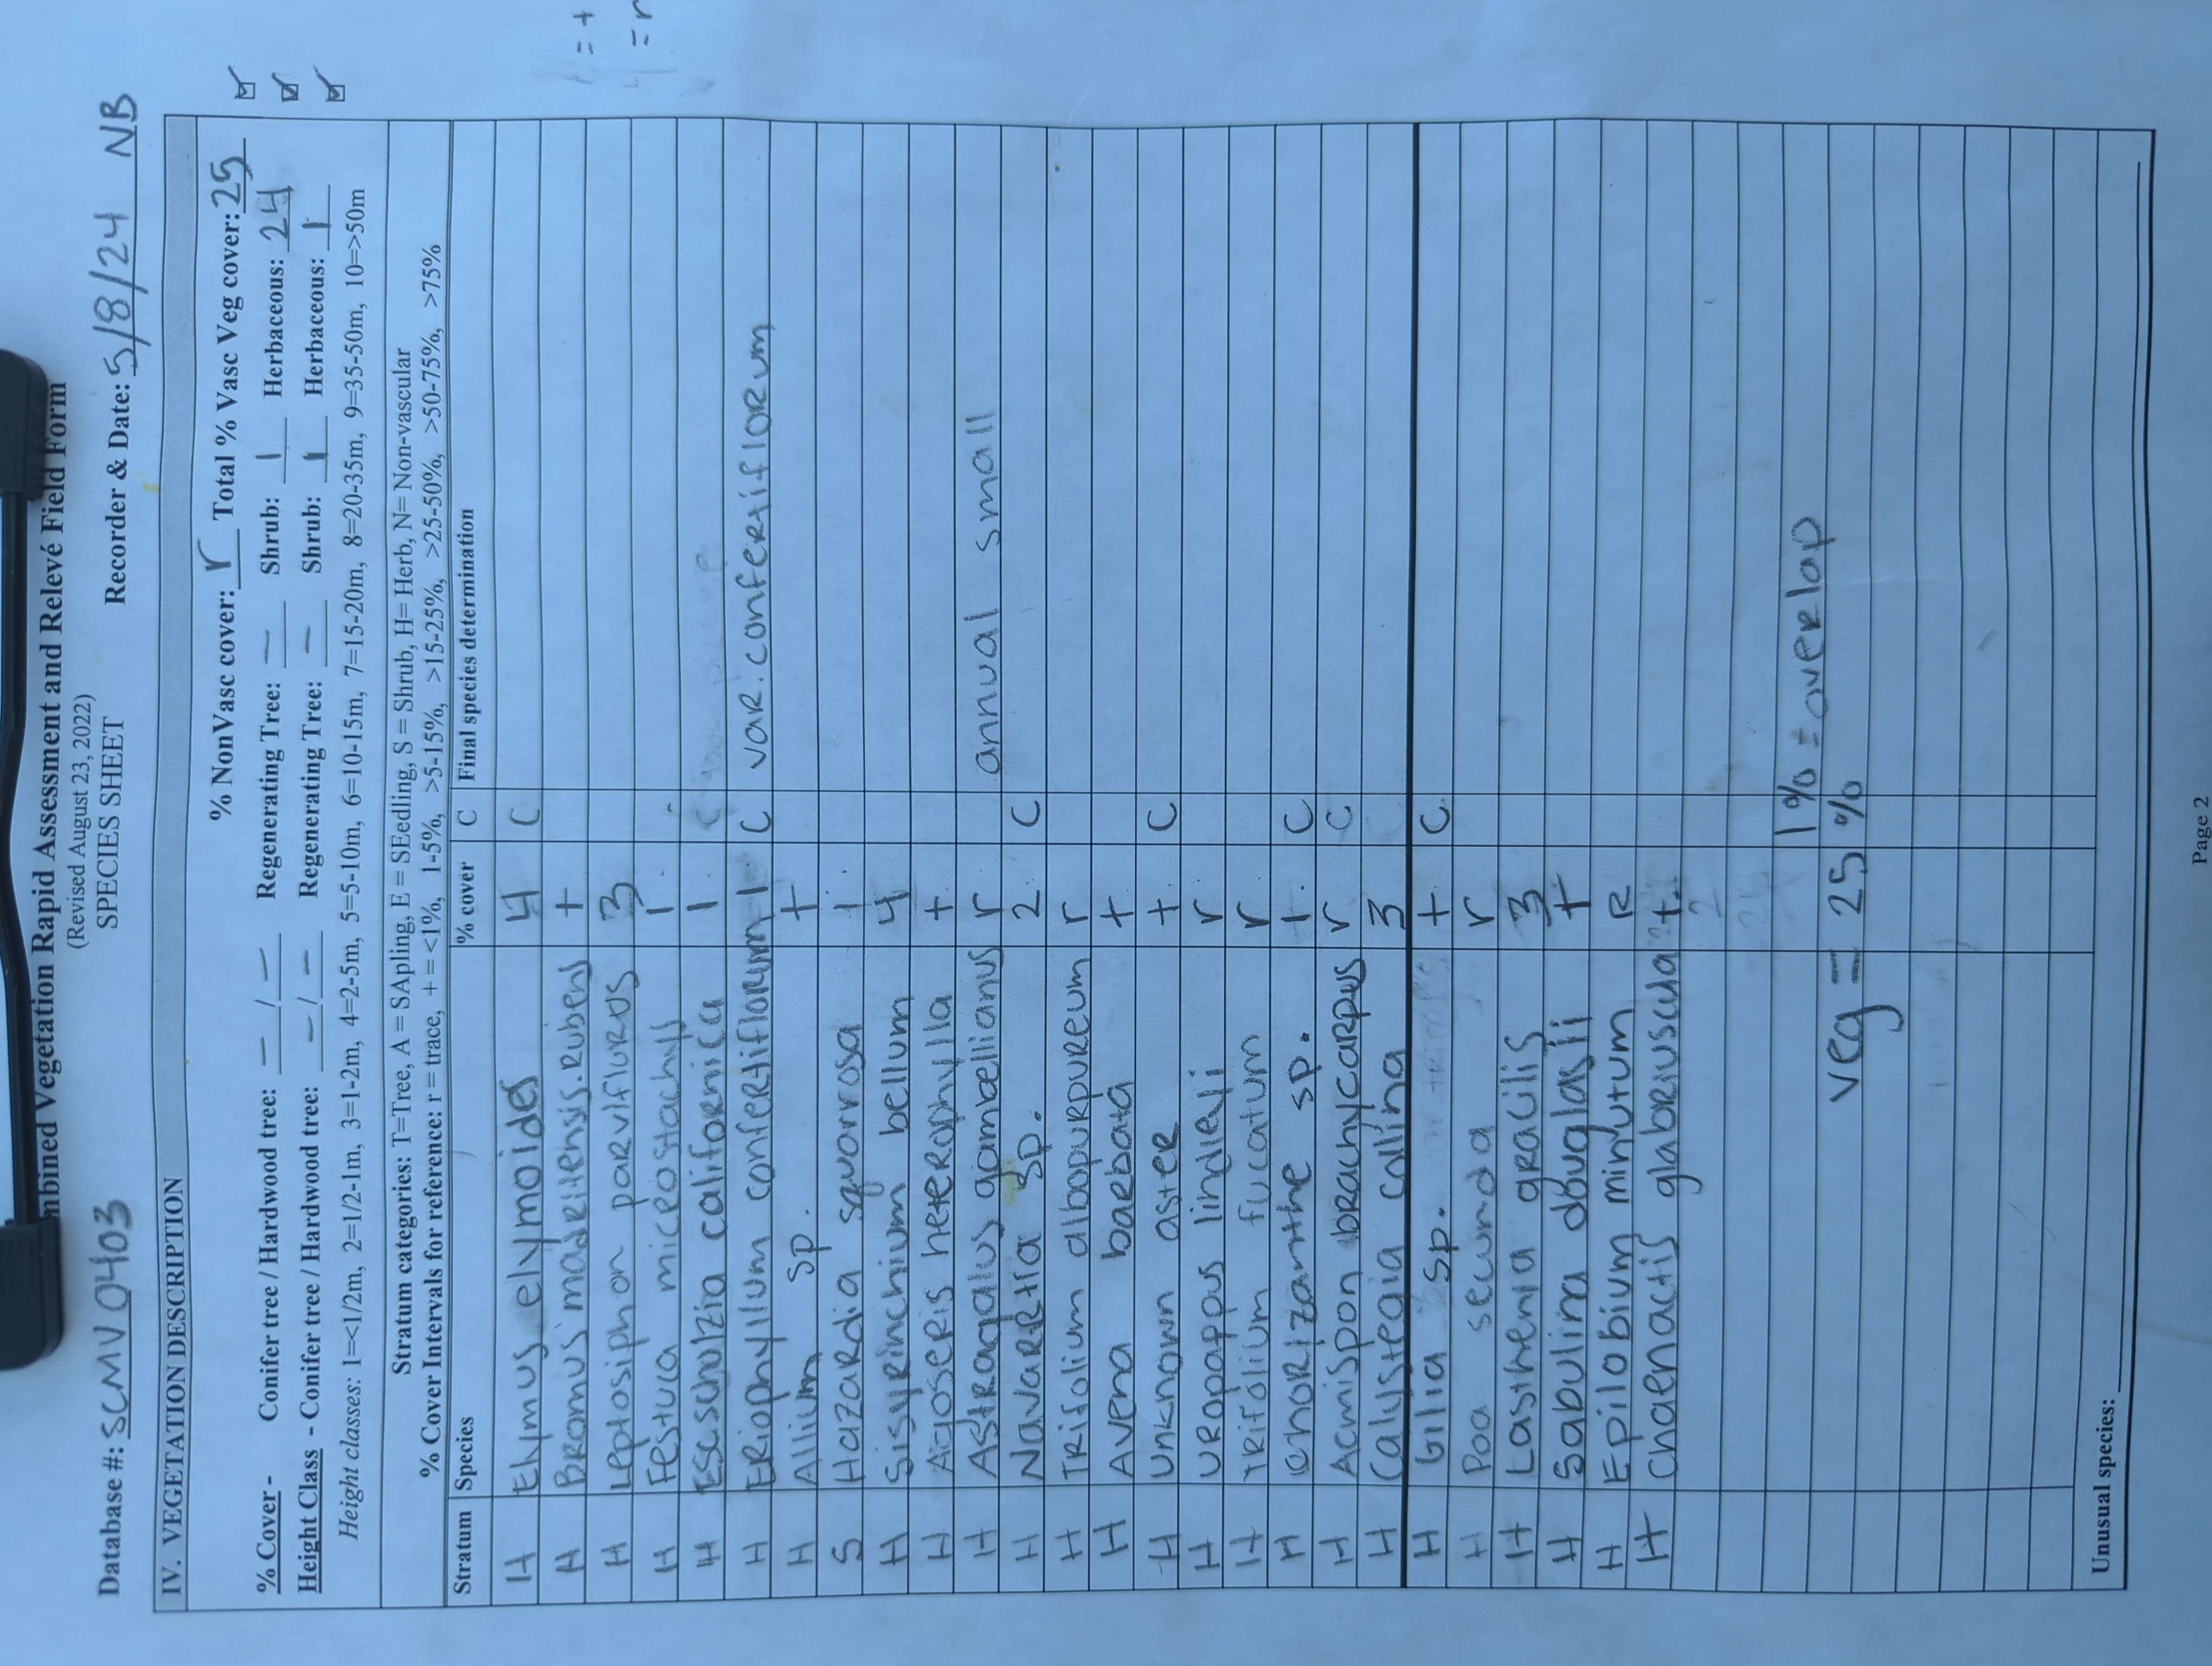 mbined Vegetation Rapid Assessment and Relevé Field Form
(Revised August 23, 2022)
SPECIES SHEET
Database #: SCMV0403 Recorder & Date: 5/8/24 NB
IV. VEGETATION DESCRIPTION
% NonVasc cover: r Total % Vasc Veg cover: 25
% Cover - Conifer tree / Hardwood tree: — / — Regenerating Tree: — Shrub: 1 Herbaceous: 24
Height Class - Conifer tree / Hardwood tree: — / — Regenerating Tree: — Shrub: 1 Herbaceous: 1
Height classes: 1=<1/2m, 2=1/2-1m, 3=1-2m, 4=2-5m, 5=5-10m, 6=10-15m, 7=15-20m, 8=20-35m, 9=35-50m, 10=>50m
Stratum categories: T=Tree, A = SApling, E = SEedling, S = Shrub, H= Herb, N= Non-vascular
% Cover Intervals for reference: r = trace, + = <1%, 1-5%, >5-15%, >15-25%, >25-50%, >50-75%, >75%
Stratum Species % cover C Final species determination
H Elymus elymoides 4 C
H Bromus madritensis.rubens +
H Leptosiphon parviflurus 3
H Festuca microstachys 1
H Eschscholzia californica 1
H Eriophyllum confertiflorum 1 C var. confertiflorum
H Allium sp. +
S Hazardia squorrosa 1
H Sisyrinchium bellum 4
H Agoseris heterophylla +
H Astragalus gambellianus r annual small
H Navarrtia sp. 2 C
H Trifolium albopurpureum r
H Avena barbata +
H unknown aster + C
H Uropappus lindleyi r
H Trifolium fucatum r
H Chorizanthe sp. 1 C
H Acmispon brachycarpus r C
H Calystegia collina 3
H Gilia sp. + C
H Poa secunda r
H Lasthenia gracilis 3
H Sabulina douglasii +
H Epilobium minutum R
H Chaenactis glabriuscula +
1% = overlap
veg = 25 %
Unusual species:
Page 2